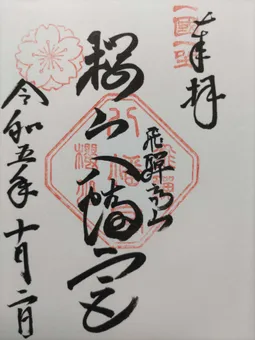 奉拝
飛驒高山
桜山八幡宮
令和五年十月二日